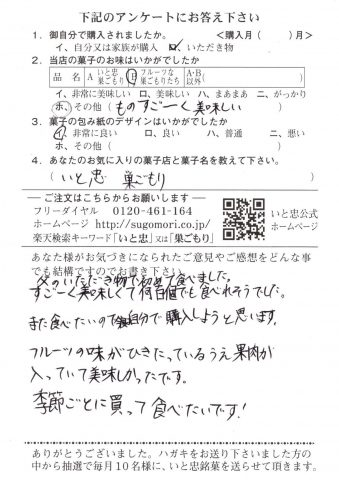 下記のアンケートにお答え下さい
1．御自分で購入されましたか。　＜購入月（　　）月＞
イ、自分又は家族が購入　ロ、いただき物
2．当店の菓子のお味はいかがでしたか
品　名　A　いと忠巣ごもり　B　フルーツな巣ごもりたち　A・B以外（　　）
イ、非常に美味しい　ロ、美味しい　ハ、まあまあ　ニ、がっかり
ホ、その他（ものすごーく美味しい　　）
3．菓子の包み紙のデザインはいかがでしたか
イ、非常に良い　ロ、良い　ハ、普通　ニ、悪い
ホ、その他（　　）
4．あなたのお気に入りの菓子店と菓子名を教えて下さい。
（いと忠　巣ごもり　　）
―ご注文はこちらからお願いします―
フリーダイヤル　0120-461-164
ホームページ　http://sugomori.co.jp/
楽天検索キーワード「いと忠」又は「巣ごもり」
いと忠公式
ホームページ
あなた様がお気づきになられたご意見やご感想をどんな事
でも結構ですのでお書き下さい
父のいただき物で初めて食べました。
すごーく美味しくて何百個でも食べれそうでした。
また食べたいので自分で購入しようと思います。
フルーツの味がひきたっているうえ果肉が
入っていて美味しかったです。
季節ごとに買って食べたいです！
ありがとうございました。ハガキをお送り下さいました方の
中から抽選で毎月10名様に、いと忠銘菓を送らせて頂きます。